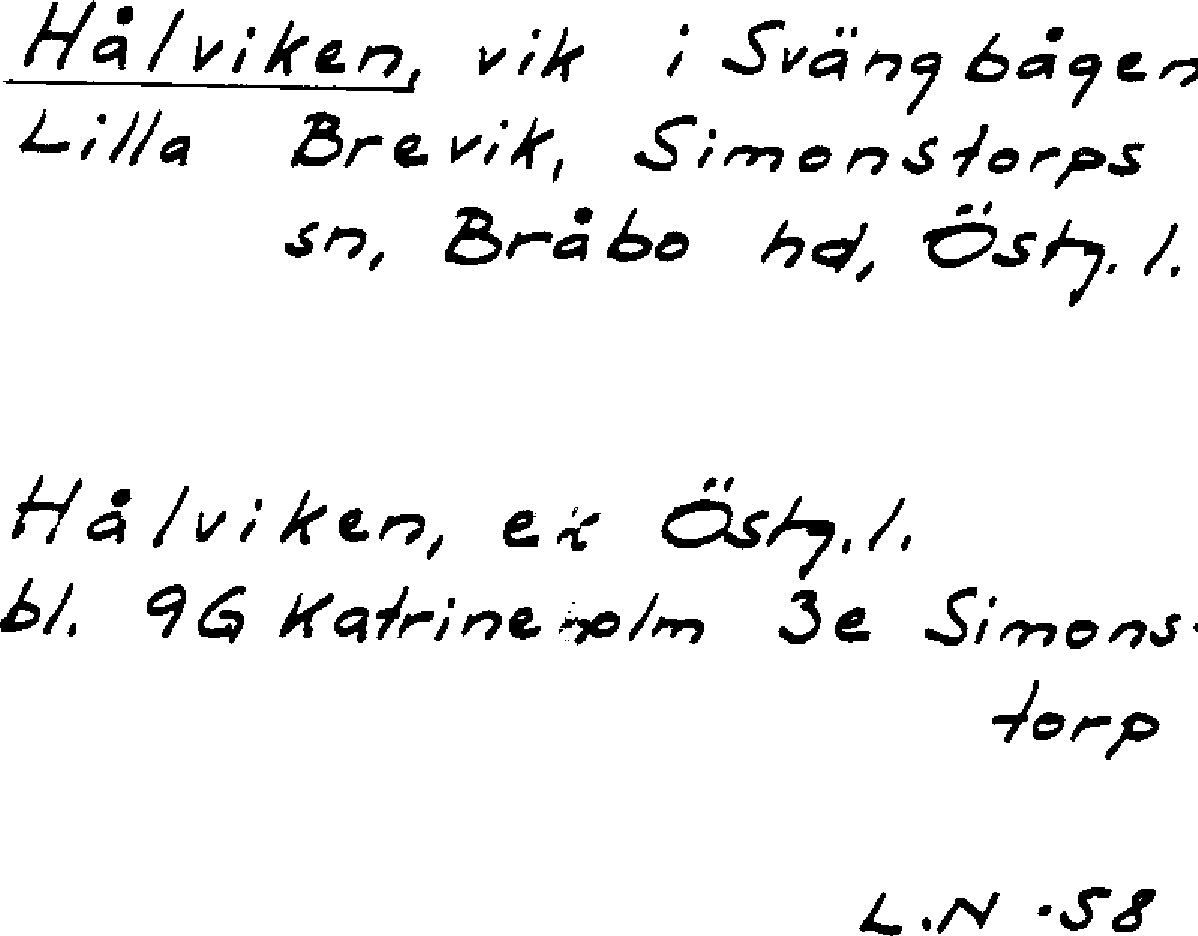 Hålviken, vik i Svängbågen
Lilla Brevik, Simonstorps
sn, Bråbo hd, Östg. l.
Hålviken, ek Östg. l.
bl. 9G Katrineholm 3e Simons-
torp
L.N -58